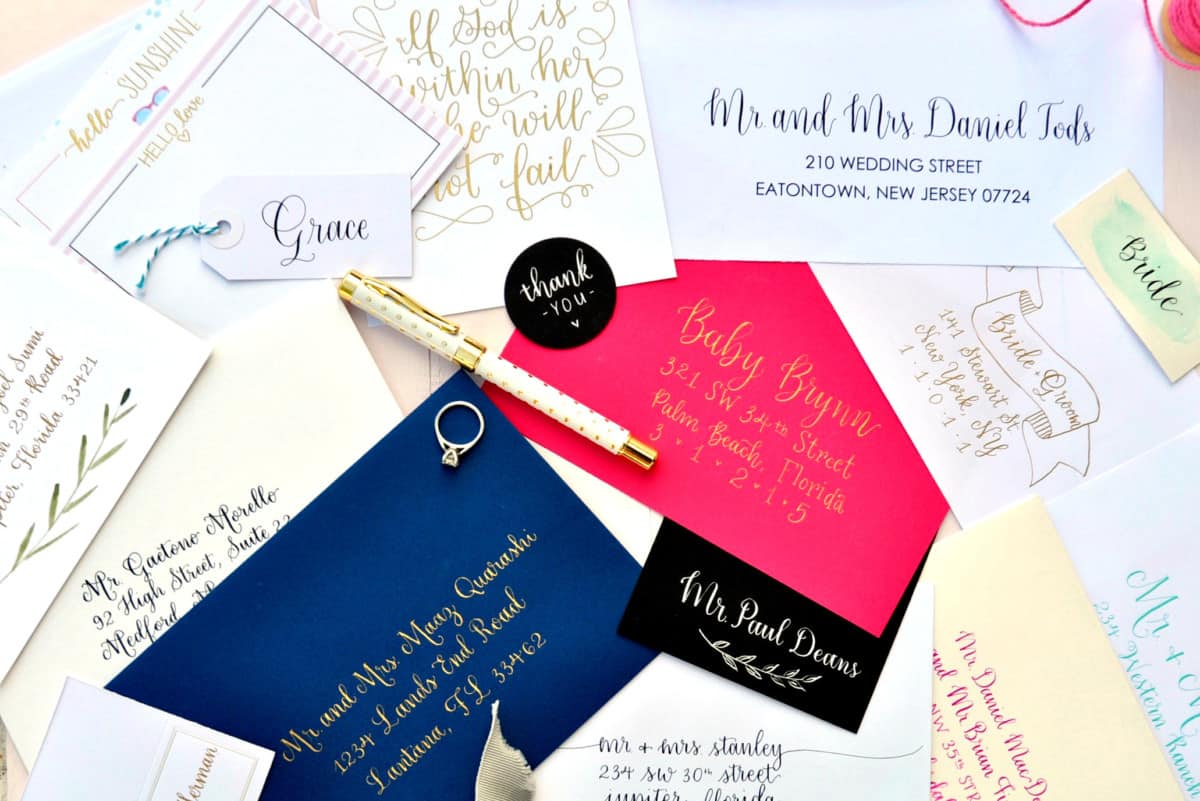 hello SUNSHINE
HELLO love
If God is
within her
she will
not fail
Mr. and Mrs. Daniel Tods
210 WEDDING STREET
EATONTOWN, NEW JERSEY 07724
Grace
thank
-YOU-
Bride
Baby Brynn
321 SW 34th Street
Palm Beach, Florida
3 · 1 · 2 · 1 · 5
Bride + Groom
141 Stewart St.
New York, NY
1 · 1 · 0 · 1 · 1
Sumi
29th Road
Florida 33421
Mr. Gaetono Morello
92 High Street, Suite 22
Medford
Mr. and Mrs. Maaz Quarashi
1234 Lands End Road
Lantana, FL 33462
Mr. Paul Deans
mr + mrs. stanley
234 sw 30th street
jupiter, florida
Mr. Daniel Mac
and Mr. Brian Fi
NW 35th STR
Mr. +
234 Western Ranch